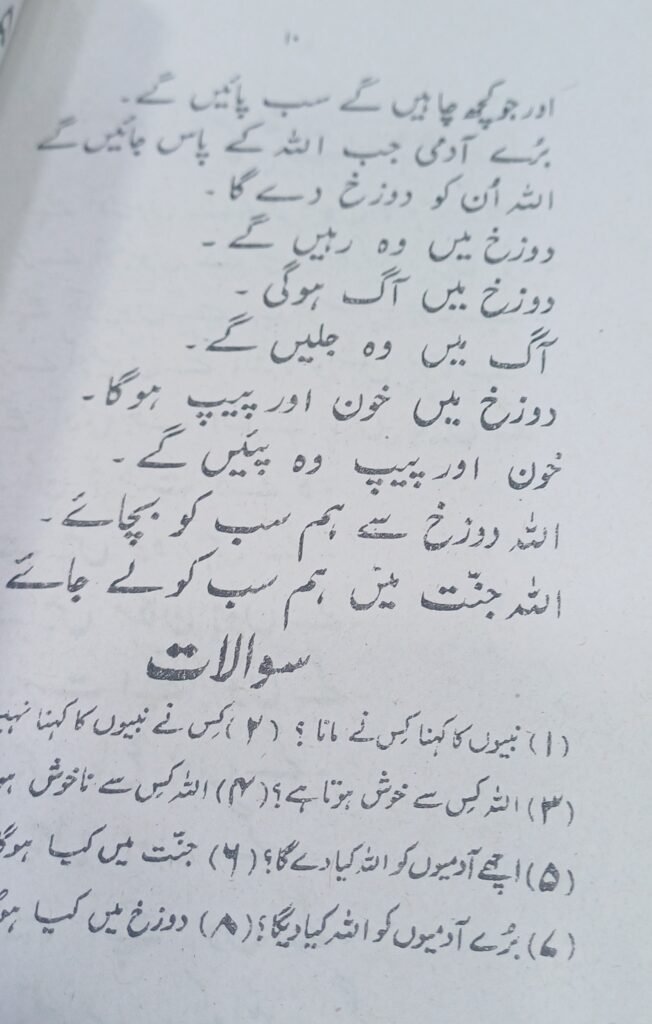 ۱۰
اور جو کچھ چاہیں گے سب پائیں گے۔
بُرے آدمی جب اللہ کے پاس جائیں گے
اللہ اُن کو دوزخ دے گا۔
دوزخ میں وہ رہیں گے۔
دوزخ میں آگ ہوگی۔
آگ میں وہ جلیں گے۔
دوزخ میں خون اور پیپ ہوگا۔
خون اور پیپ وہ پئیں گے۔
اللہ دوزخ سے ہم سب کو بچائے۔
اللہ جنّت میں ہم سب کو لے جائے
سوالات
(۱) نبیوں کا کہنا کِس نے مانا ؟ (۲) کِس نے نبیوں کا کہنا
(۳) اللہ کِس سے خوش ہوتا ہے؟ (۴) اللہ کِس سے ناخوش
(۵) اچھے آدمیوں کو اللہ کیا دے گا؟ (۶) جنّت میں کیا
(۷) بُرے آدمیوں کو اللہ کیا دیگا؟ (۸) دوزخ میں کیا